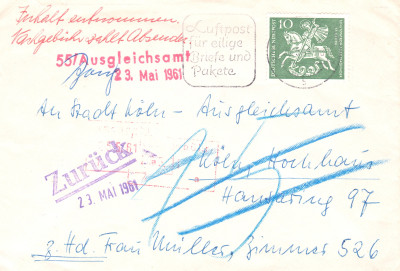 Inhalt entnommen.
Nachgebühr zahlt Absender
55/Ausgleichsamt
23. Mai 1961
Luftpost
für eilige
Briefe und
Pakete
10
An Stadt Köln - Ausgleichsamt
Zurück
23. MAI 1961
Köln, Hochhaus
Hansaring 97
z. Hd. Frau Müller, Zimmer 526